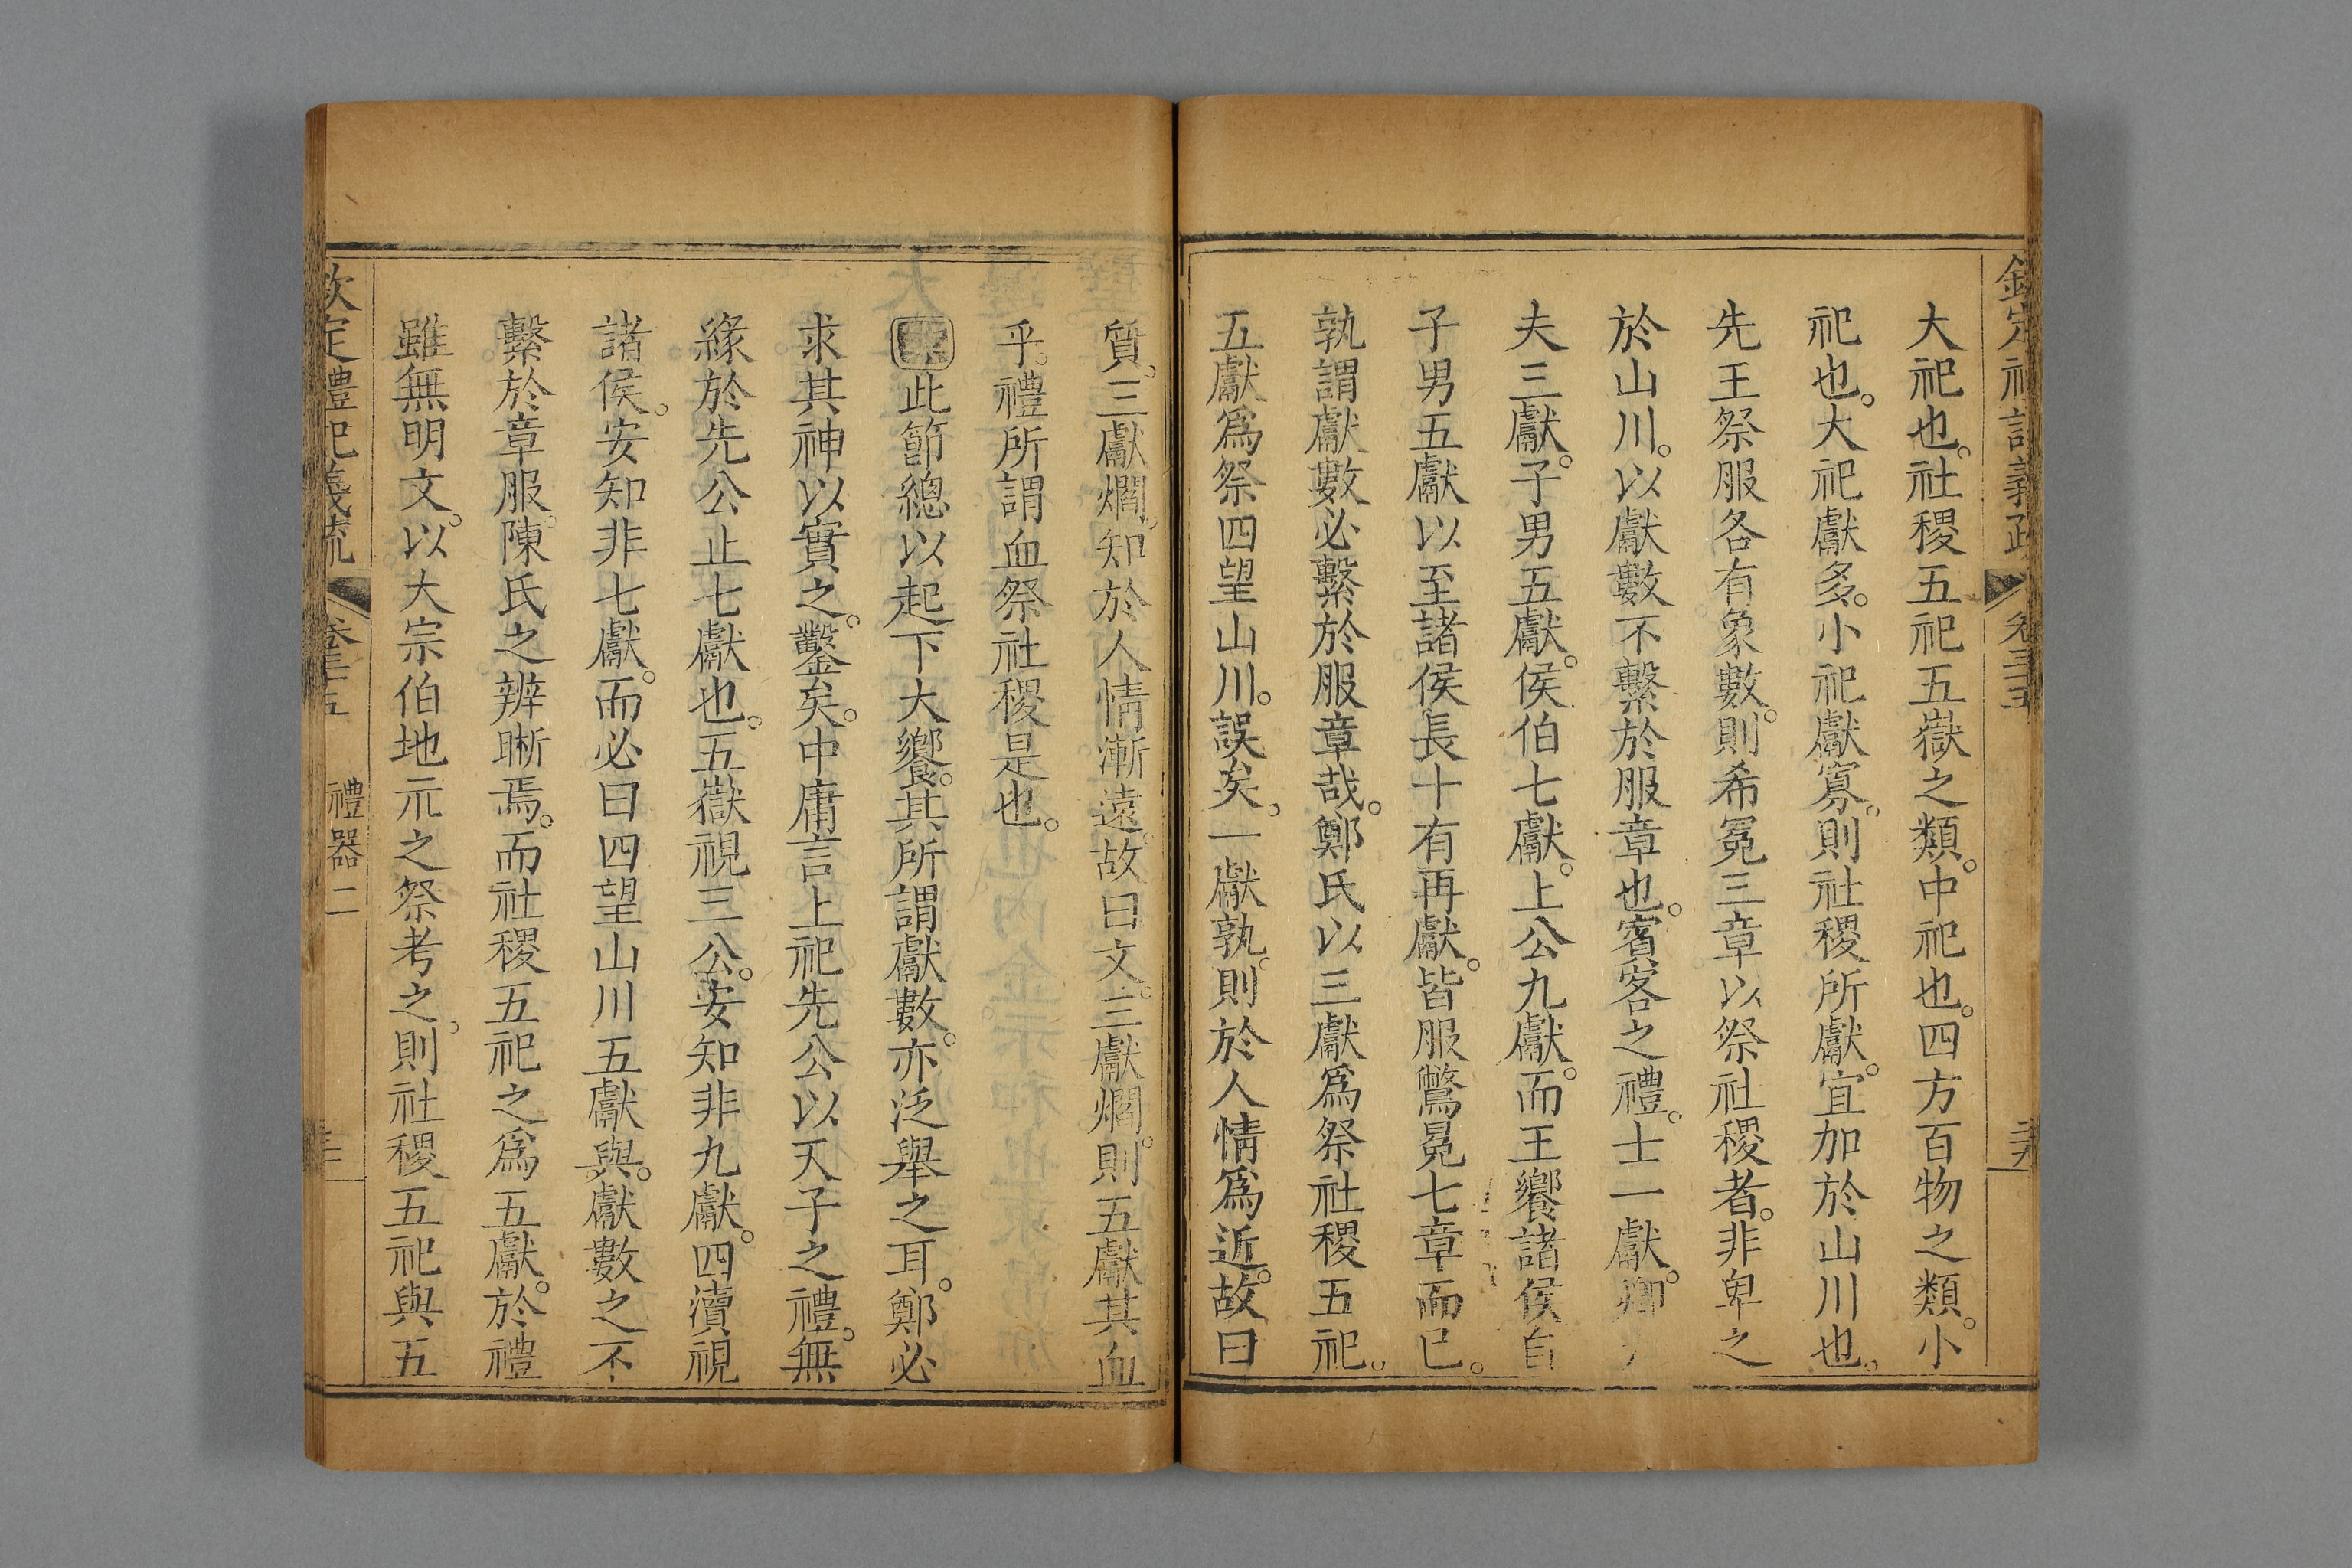 大祀也。社稷五祀五嶽之類。中祀也。四方百物之類。小
祀也。大祀獻多。小祀獻寡。則社稷所獻。宜加於山川也。
先王祭服各有象數。則希冕三章以祭社稷者。非卑之
於山川。以獻數不繫於服章也。賓客之禮。士一獻。卿
夫三獻。子男五獻。侯伯七獻。上公九獻。而王饗諸侯自
子男五獻以至諸侯長十有再獻。皆服鷩冕七章而已。
孰謂獻數必繫於服章哉。鄭氏以三獻爲祭社稷五祀。
五獻爲祭四望山川。誤矣。一獻孰。則於人情爲近。故曰
質。三獻爓。知於人情漸遠。故曰文。三獻爓。則五獻其血
乎。禮所謂血祭社稷是也。
此節總以起下大饗。其所謂獻數。亦泛舉之耳。鄭必
求其神以實之。鑿矣。中庸言上祀先公以天子之禮。無
緣於先公止七獻也。五嶽視三公。安知非九獻。四瀆視
諸侯。安知非七獻。而必曰四望山川五獻與。獻數之不
繫於章服。陳氏之辨晰焉。而社稷五祀之爲五獻。於禮
雖無明文。以大宗伯地示之祭考之。則社稷五祀與五
欽定禮記義疏 卷三十五 禮器二